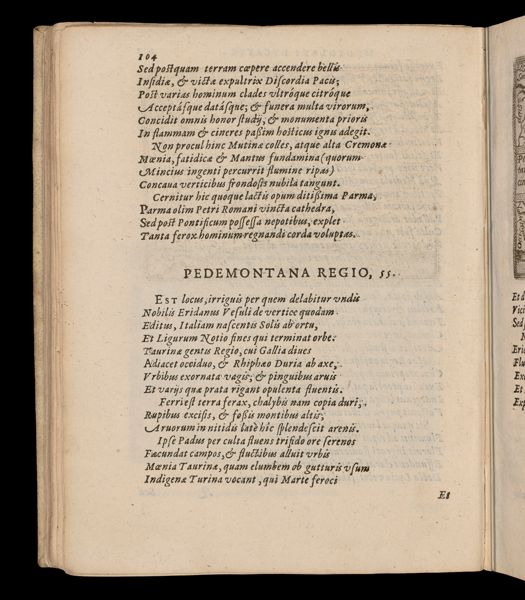 104
Sed postquam terram cœpere accendere bellis
Insidiæ, & victæ expultrix Discordia Pacis;
Post varias hominum clades vltróque citróque
Acceptásque datásque; & funera multa virorum,
Concidit omnis honor studij, & monumenta prioris
In flammam & cineres paßim hosticus ignis adegit.
Non procul hinc Mutinæ colles, atque alta Cremonæ
Mœnia, fatidicæ & Mantus fundamina (quorum
Mincius ingenti percurrit flumine ripas)
Concaua verticibus frondosis nubila tangunt.
Cernitur hic quoque lactis opum ditißima Parma,
Parma olim Petri Romani vincta cathedra,
Sed post Pontificum possessa nepotibus, explet
Tanta ferox hominum regnandi corda voluptas.
PEDEMONTANA REGIO, 55.
EST locus, irriguis per quem delabitur vndis
Nobilis Eridanus Vesuli de vertice quodam
Editus, Italiam nascentis Solis ab ortu,
Et Ligurum Notio fines qui terminat orbe:
Taurinæ gentis Regio, cui Gallia diues
Adiacet occiduo, & Rhiphæo Duria ab axe,
Vrbibus exornata vagis; & pinguibus aruis
Et varijs quæ prata rigant opulenta fluentis.
Ferri est terra ferax, chalybis nam copia duri,
Rupibus excisis, & foßis montibus altis;
Aruorum in nitidis latè hîc splendescit arenis.
Ipse Padus per culta fluens trifido ore serenos
Fæcundat campos, & fluctibus alluit vrbis
Mœnia Taurinæ, quam elumbem ob gutturis vsum
Indigenæ Turina vocant, qui Marte feroci
Et